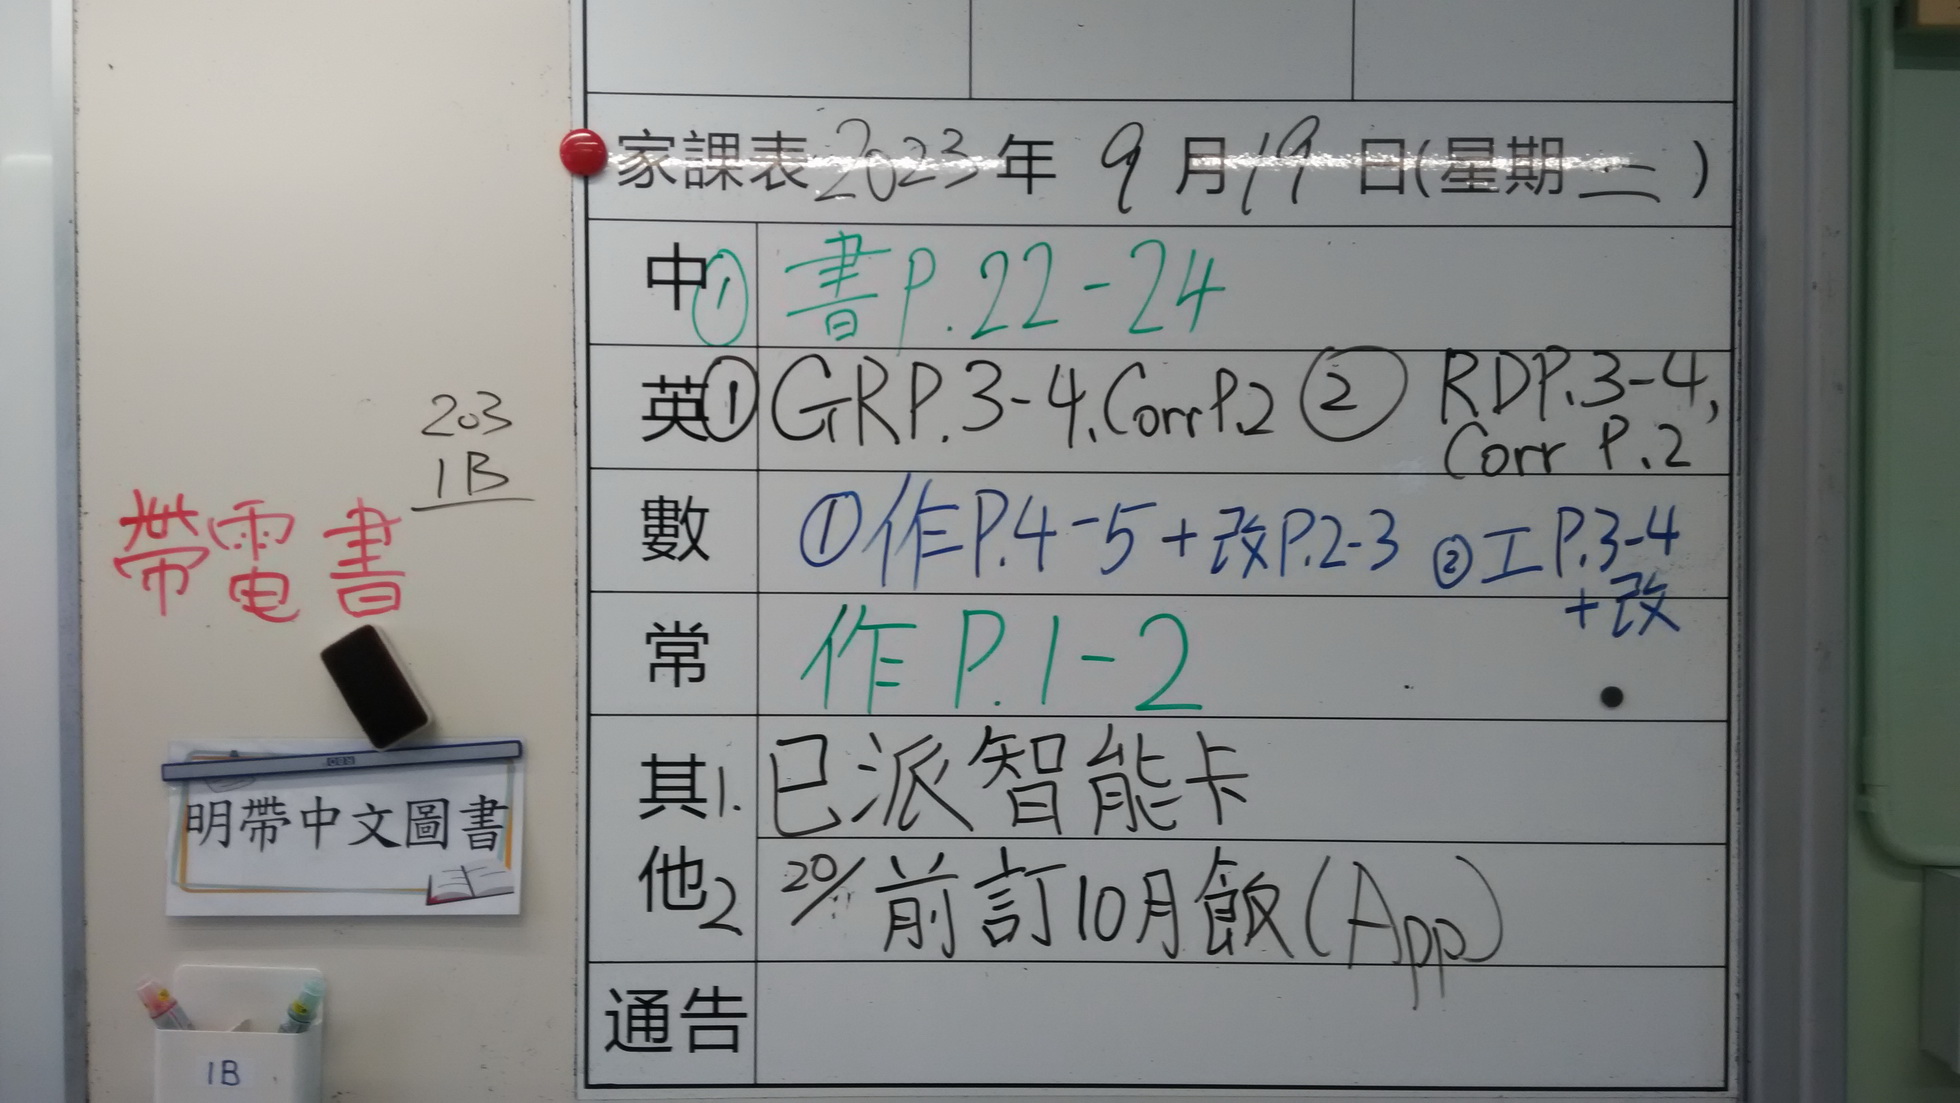 家課表 2023年 9月19日(星期二)
中 ① 書P.22-24
英 ① GRP.3-4, Corr P.2 ② RDP.3-4,
Corr P.2
數 ①作P.4-5+改P.2-3 ②工P.3-4
+改
常 作P.1-2
其 1. 已派智能卡
他 2 20/前訂10月飯(App)
通告
203
1B
帶電書
明帶中文圖書
1B